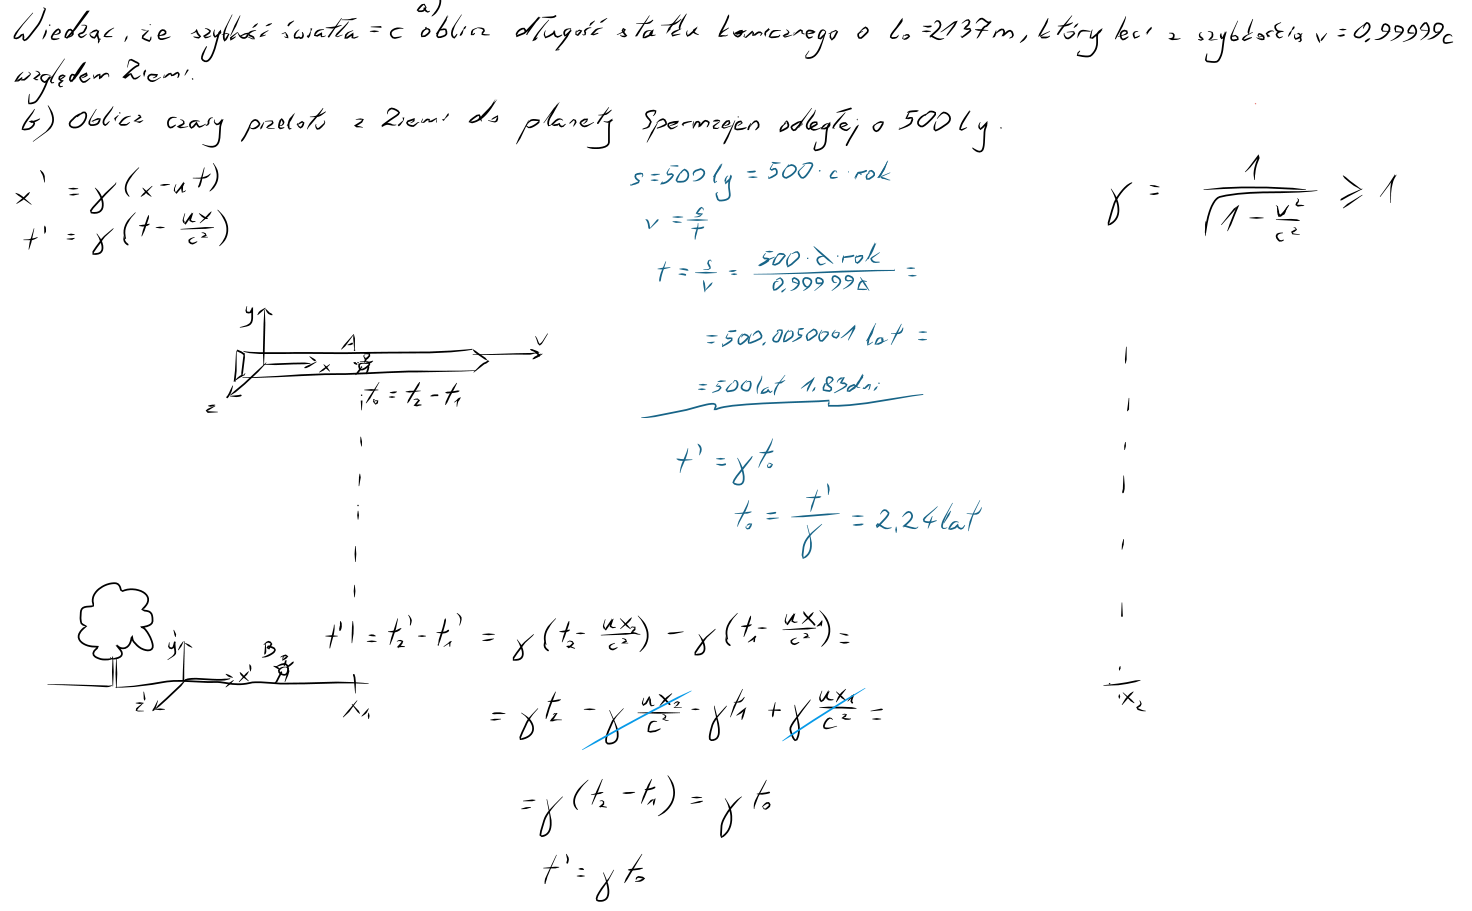 a)
Wiedząc, że szybkość światła = c oblicz długość statku komicznego o l₀ = 2137m, który leci z szybkością v = 0,99999c
względem Ziemi.
b) Oblicz czasy przelotu z Ziemi do planety Spermzejen odległej o 500 ly.
x' = γ(x-ut)
t' = γ(t - ux/c²)
s = 500 ly = 500 · c · rok
v = s/t
t = s/v = 500 · c · rok / 0,99999c =
= 500,0050001 lat =
= 500 lat 1,83 dni
t' = γ t₀
t₀ = t'/γ = 2,24 lat
γ = 1/√(1 - v²/c²) ⩾ 1
y
A
v
x
z
t₀ = t₂ - t₁
y'
B
x'
z'
x₁
x₂
t' = t₂' - t₁' = γ(t₂ - ux₂/c²) - γ(t₁ - ux₁/c²) =
= γt₂ - γ ux₂/c² - γt₁ + γ ux₁/c² =
= γ(t₂ - t₁) = γ t₀
t' = γ t₀